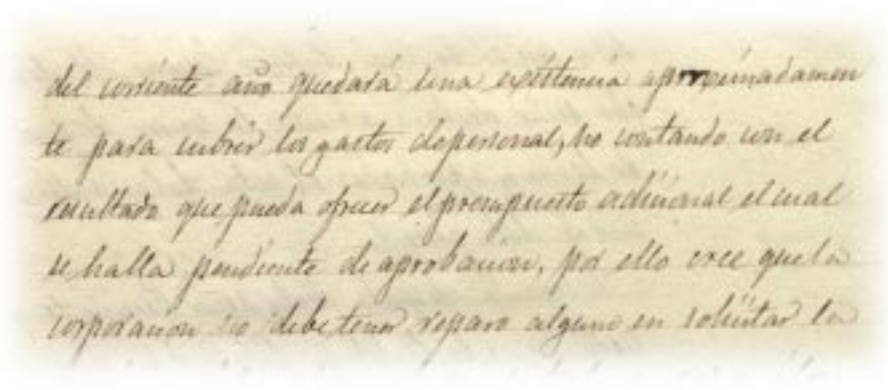 del corriente año quedará una existencia aproximadamen
te para cubrir los gastos de personal, no contando con el
resultado que pueda ofrecer el presupuesto adicional el cual
se halla pendiente de aprobacion, por ello cree que la
corporacion no debe tener reparo alguno en solicitar la